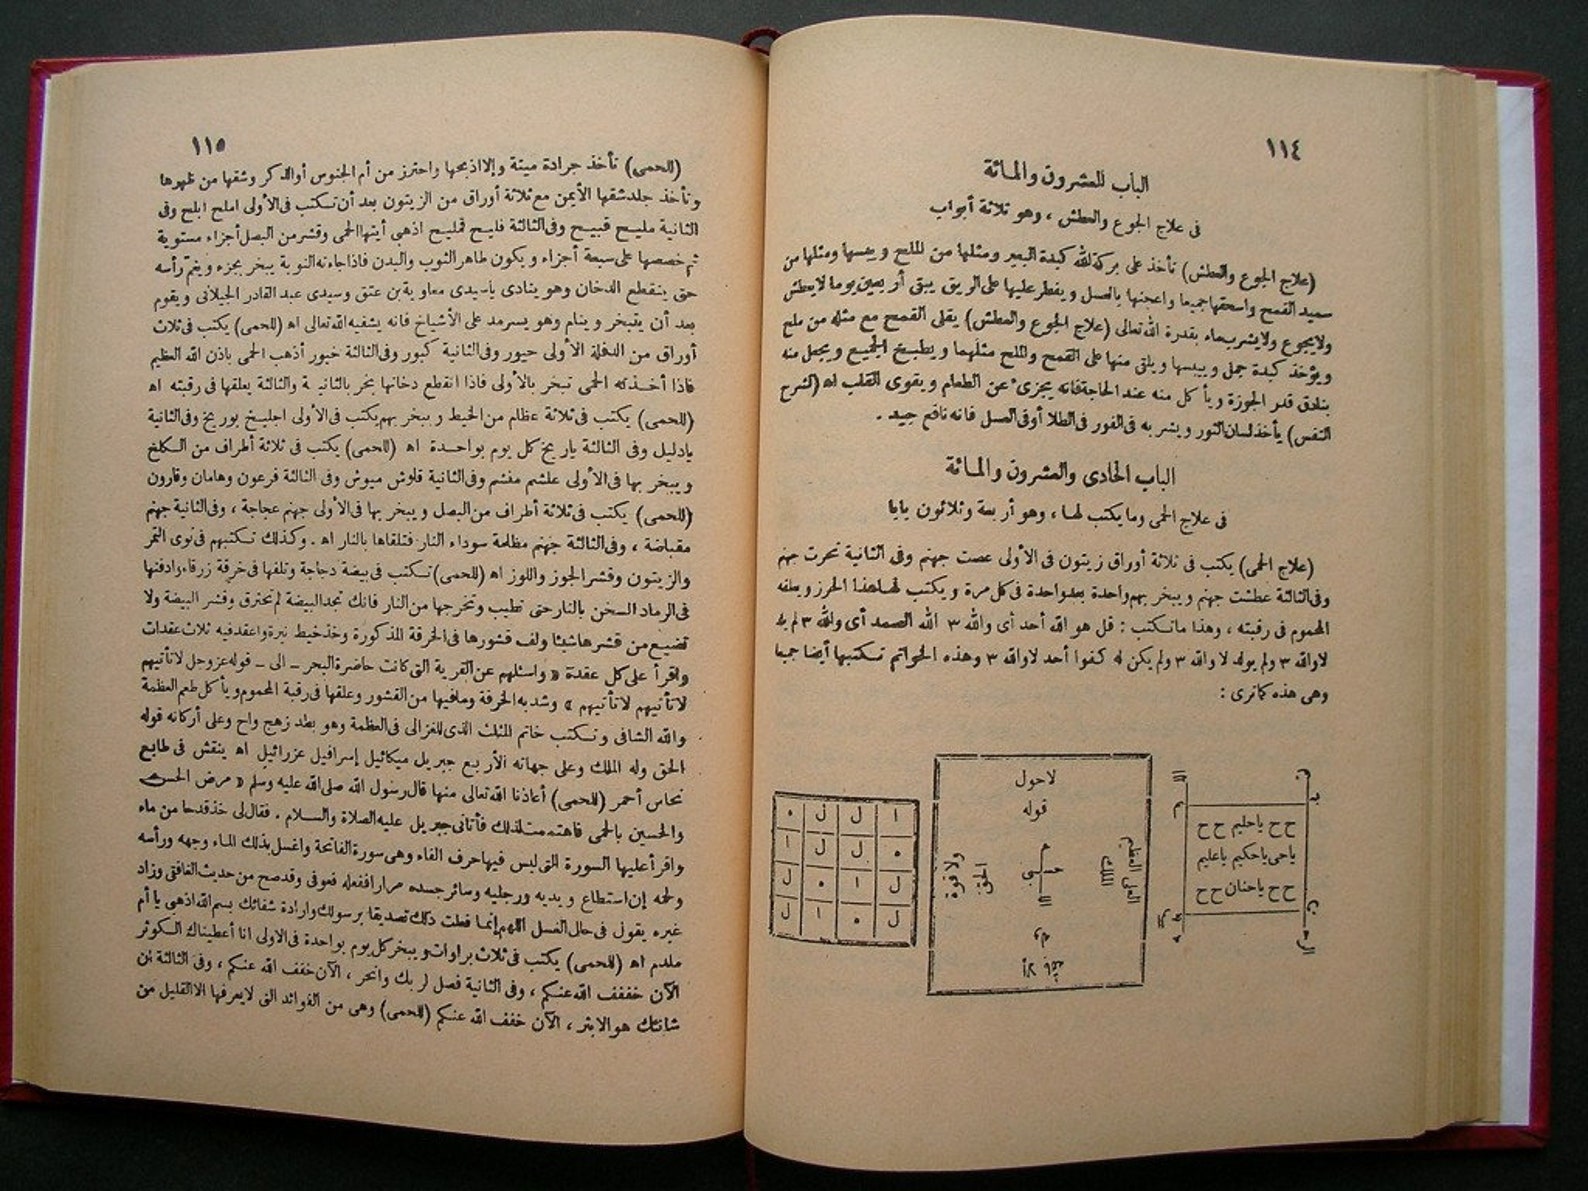 ١١٤
الباب العشرون والمائة
فى علاج الجوع والعطش ، وهو ثلاثة أبواب
(علاج الجوع والعطش) تأخذ على بركة الله كبدة البعير ومثلها من الملح وييبسها ومثلها من
سميد القمح واسحقها جميعا واعجنها بالعسل ويفطر عليها على الريق يبقى أربعين يوما لا يعطش
ولا يجوع ولا يشرب ماء بقدرة الله تعالى (علاج الجوع والعطش) يقلى القمح مع مثله من ملح
ويؤخذ كبدة جمل وييبسها ويلقى منها على القمح والملح مثلهما ويطبخ الجميع ويجعل منه
بنادق قدر الجوزة ويأكل منه عند الحاجة فانه يجزىء عن الطعام ويقوى القلب اه (لشرح
النفس) يأخذ لسان الثور ويشربه فى الفور فى الطلا أوفى العسل فانه نافع جيد .
الباب الحادى والعشرون والمائة
فى علاج الحمى وما يكتب لها ، وهو أربعة وثلاثون بابا
(علاج الحمى) يكتب فى ثلاثة أوراق زيتون فى الأولى عصت جهنم وفى الثانية نحرت جهنم
وفى الثالثة عطشت جهنم ويبخر بهم واحدة بعد واحدة فى كل مرة ويكتب لها هذا الحرز ويعلقه
المحموم فى رقبته ، وهذا ما تكتب : قل هو الله أحد أى والله ٣ الله الصمد أى والله ٣ لم يلد
لا والله ٣ ولم يولد لا والله ٣ ولم يكن له كفوا أحد لا والله ٣ وهذه الخواتم تكتبها أيضا جميعا
وهى هذه كما ترى :
ح ح ياحليم ح ح
ياحى ياحكيم ياعليم
ح ح ياحنان ح ح
لاحول
قوله
العلى العظيم
الملك
حسبى
الحق
ولا قوة
ا ل ل ٠
٠ ل ل ا
ل ا ٠ ل
ل ٠ ا ل
١١٥
(للحمى) تأخذ جرادة ميتة وإلا اذبحها واحترز من أم الجنوس أوالذكر وشقها من ظهرها
وتأخذ جلد شقها الأيمن مع ثلاثة أوراق من الزيتون بعد أن تكتب فى الأولى املح ابلح وفى
الثانية مليح قبيح وفى الثالثة فليح قمليح اذهبى أيتها الحمى وقشر من البصل أجزاء مستوية
ثم خصصها على سبعة أجزاء ويكون طاهر الثوب والبدن فاذا جاءته النوبة يبخر بجزء ويغم رأسه
حتى ينقطع الدخان وهو ينادى ياسيدى معاوية بن عتق وسيدى عبد القادر الجيلانى ويقوم
بعد أن يتبخر وينام وهو يسرمد على الأشياخ فانه يشفيه الله تعالى اه (للحمى) يكتب فى ثلاث
أوراق من الدفلة الأولى حيور وفى الثانية كبور وفى الثالثة خيور أذهب الحمى باذن الله العظيم
فاذا أخذته الحمى تبخر بالأولى فاذا انقطع دخانها بخر بالثانية والثالثة يعلقها فى رقبته اه
(للحمى) يكتب فى ثلاثة عظام من الخيط ويبخر بهم يكتب فى الأولى اجليخ بوريخ وفى الثانية
يادليل وفى الثالثة ياريخ كل يوم بواحدة اه (للحمى) يكتب فى ثلاثة أطراف من الكلخ
ويبخر بها فى الأولى علشم مغشم وفى الثانية قلوش ميوش وفى الثالثة فرعون وهامان وقارون
(للحمى) يكتب فى ثلاثة أطراف من البصل ويبخر بها فى الأولى جهنم عجاجة ، وفى الثانية جهنم
مقباضة ، وفى الثالثة جهنم مظلمة سوداء النار فتلقاها بالنار اه . وكذلك تكتبهم فى نوى التمر
والزيتون وقشر الجوز واللوز اه (للحمى) تكتب فى بيضة دجاجة وتلفها فى خرقة زرقاء وادفنها
فى الرماد السخن بالنار حتى تطيب وتخرجها من النار فانك تجد البيضة لم تحترق وقشر البيضة ولا
تضيع من قشرها شيئا ولف قشورها فى الخرقة المذكورة وخذ خيط نيرة واعقد فيه ثلاث عقدات
واقرأ على كل عقدة « واسئلهم عن القرية التى كانت حاضرة البحر – الى – قوله عز وجل لا تأتيهم
لا تأتيهم لا تأتيهم » وشد به الخرقة وما فيها من القشور وعلقها فى رقبة المحموم ويأكل طعم العظمة
والله الشافى وتكتب خاتم المثلث الذى للغزالى فى العظمة وهو بطد زهج واح وعلى أركانه قوله
الحق وله الملك وعلى جهاته الأربع جبريل ميكائيل إسرافيل عزرائيل اه ينقش فى طابع
نحاس أحمر (للحمى) أعاذنا الله تعالى منها قال رسول الله صلى الله عليه وسلم « مرض الحسن
والحسين بالحمى فاهتممت لذلك فأتانى جبريل عليه الصلاة والسلام . فقال لى خذ قدحا من ماء
واقرأ عليها السورة التى ليس فيها حرف الفاء وهى سورة الفاتحة واغسل بذلك الماء وجهه ورأسه
ولحمه إن استطاع ويديه ورجليه وسائر جسده مرارا ففعله فعوفى وقد صح من حديث الغافقى وزاد
غيره يقول فى حال الغسل اللهم إنما فعلت ذلك تصديقا برسولك وارادة شفائك بسم الله اذهبى يا أم
ملدم اه (للحمى) يكتب فى ثلاث براوات ويبخر كل يوم بواحدة فى الاولى انا أعطيناك الكوثر
الآن خففف الله عنكم ، وفى الثانية فصل لربك وانحر ، الآن خفف الله عنكم ، وفى الثالثة إن
شانئك هو الابتر ، الآن خفف الله عنكم (للحمى) وهى من الفوائد التى لا يعرفها الا القليل من